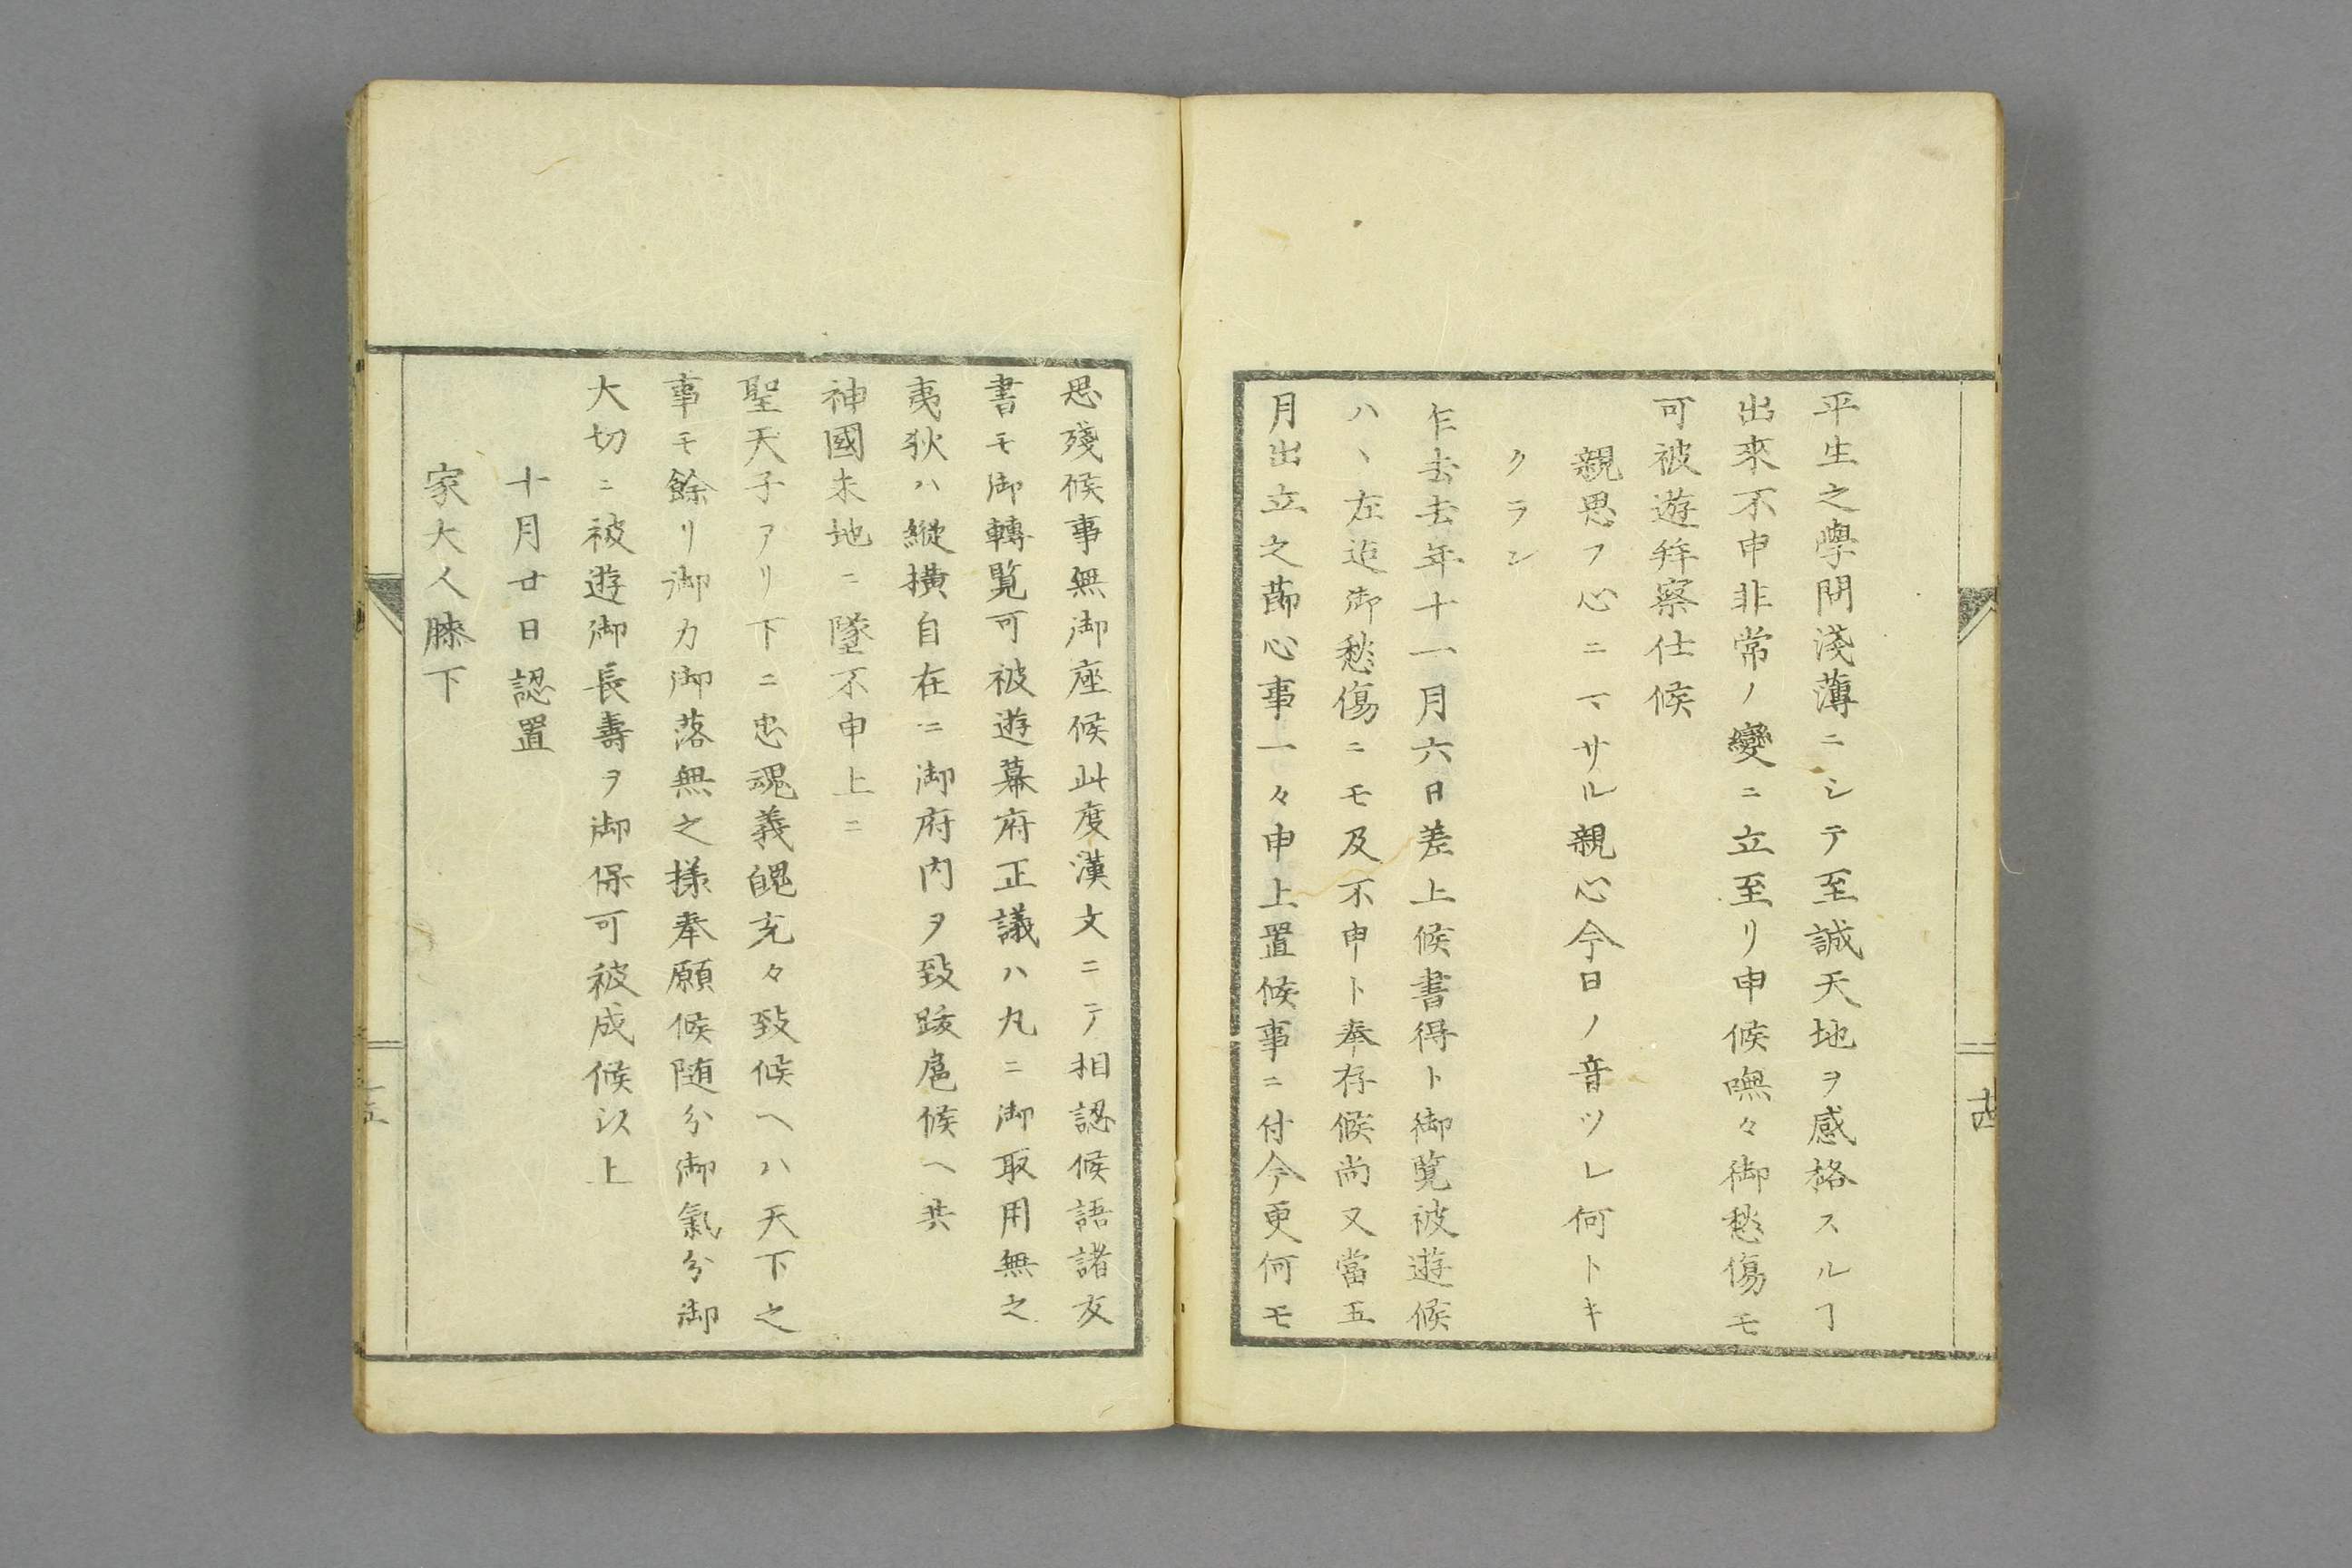 平生之學問淺薄ニシテ至誠天地ヲ感格スルヿ
出來不申非常ノ變ニ立至リ申候嘸々御愁傷モ
可被遊拜察仕候
親思フ心ニマサル親心今日ノ音ツレ何トキ
クラン
乍去去年十一月六日差上候書得ト御覽被遊候
ハヽ左迄御愁傷ニモ及不申ト奉存候尚又當五
月出立之節心事一々申上置候事ニ付今更何モ
思殘候事無御座候此度漢文ニテ相認候語諸友
書モ御轉覧可被遊幕府正議ハ丸ニ御取用無之
夷狄ハ縱横自在ニ御府内ヲ致跋扈候ヘ共
神國未地ニ墜不申上ニ
聖天子アリ下ニ忠魂義魄充々致候ヘハ天下之
事モ餘リ御力御落無之様奉願候随分御氣分御
大切ニ被遊御長壽ヲ御保可被成候以上
十月廿日認置
家大人膝下